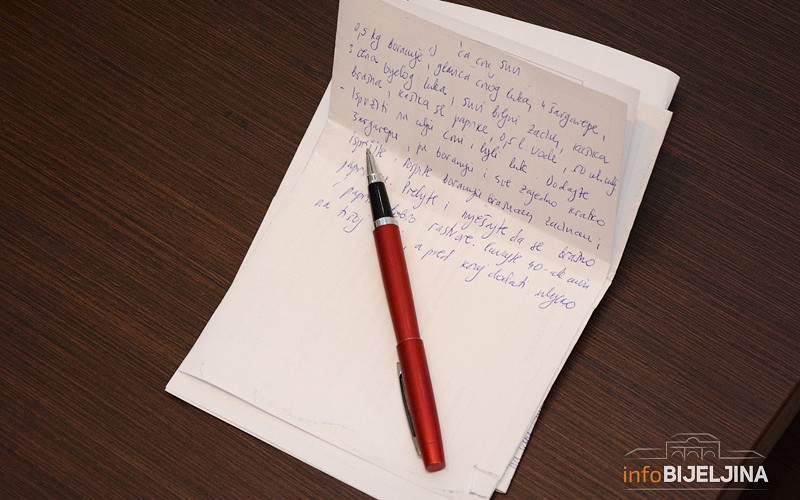 0,5 kg boranije, glavica crnog luka, 4 šargarepe,
3 čena bijelog luka, suvi biljni začin, kašika
brašna, kašika paprike, 0,5 l vode, 50 ml
- Ispržiti na ulju crni i bijeli luk. Dodajte
šargarepu, pa boraniju i sve zajedno kratko
ispržite. Pospite boraniju brašnom, začinom i
paprikom. Prelijte i miješajte da se brašno
i paprika dobro rastvore. Kuvajte 40-ak min
na tihoj, a pred kraj dodati mlijeko
infoBIJELJINA